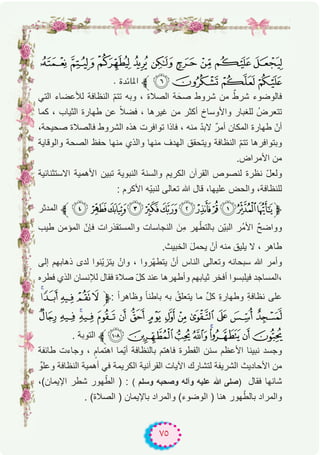 لِيَجْعَلَ عَلَيْكُم مِّنْ حَرَجٍ وَلَٰكِن يُرِيدُ لِيُطَهِّرَكُمْ وَلِيُتِمَّ نِعْمَتَهُ
عَلَيْكُمْ لَعَلَّكُمْ تَشْكُرُونَ ﴿٦﴾ المائدة .
فالوضوء شرطٌ من شروط صحّة الصلاة ، وبه تتمّ النظافة للأعضاء التي
تتعرضُ للغبار والأوساخ أكثر من غيرها ، فضلاً عن طهارة الثياب ، كما
أنّ طهارة المكان أمرٌ لابدّ منه ، فاذا توافرت هذه الشروط فالصلاة صحيحة،
وبتوافرها تتمّ النظافة ويتحقق الهدف منها والذي منها حفظ الصحة والوقاية
من الأمراض.
ولعلّ نظرة لنصوص القرآن الكريم والسنة النبوية تبين الأهمية الاستثنائية
للنظافة، والحض عليها، قال الله تعالى لنبيّه الأكرم :
يَٰٓأَيُّهَا ٱلْمُدَّثِّرُ ﴿١﴾ قُمْ فَأَنذِرْ ﴿٢﴾ وَرَبَّكَ فَكَبِّرْ ﴿٣﴾ وَثِيَابَكَ فَطَهِّرْ ﴿٤﴾ المدثر
وواضحٌ الأمْر البيّن بالتطّهر من النجاسات والمستقذرات فإنّ المؤمن طيب
طاهر ، لا يليق منه أنْ يحمل الخبيث.
وأمر الله سبحانه وتعالى الناس أنْ يتطهّروا ، وانْ يتزيّنوا لدى ذهابهم إلى
المساجد فيلبسوا أفخر ثيابهم وأطهرها عند كلّ صلاة فقال للإنسان الذي فطره،
على نظافة وطهارة كلّ ما يتعلّق به باطناً وظاهراً : ﴿ لَا تَقُمْ فِيهِ أَبَدًا
لَّمَسْجِدٌ أُسِّسَ عَلَى ٱلتَّقْوَىٰ مِنْ أَوَّلِ يَوْمٍ أَحَقُّ أَن تَقُومَ فِيهِ فِيهِ رِجَالٌ
يُحِبُّونَ أَن يَتَطَهَّرُوا۟ وَٱللَّهُ يُحِبُّ ٱلْمُطَّهِّرِينَ ﴿١٠٨﴾ التوبة .
وجسد نبينا الأعظم سنن الفطرة فاهتم بالنظافة أيّما اهتمام ، وجاءت طائفة
من الأحاديث الشريفة لتشارك الآيات القرآنية الكريمة في أهمية النظافة وعلوّ
شانها فقال (صلى الله عليه وآله وصحبه وسلم ) : ( الطّهور شطر الإيمان)،
والمراد بالطّهور هنا ( الوضوء) والمراد بالإيمان ( الصلاة) .
٧٥